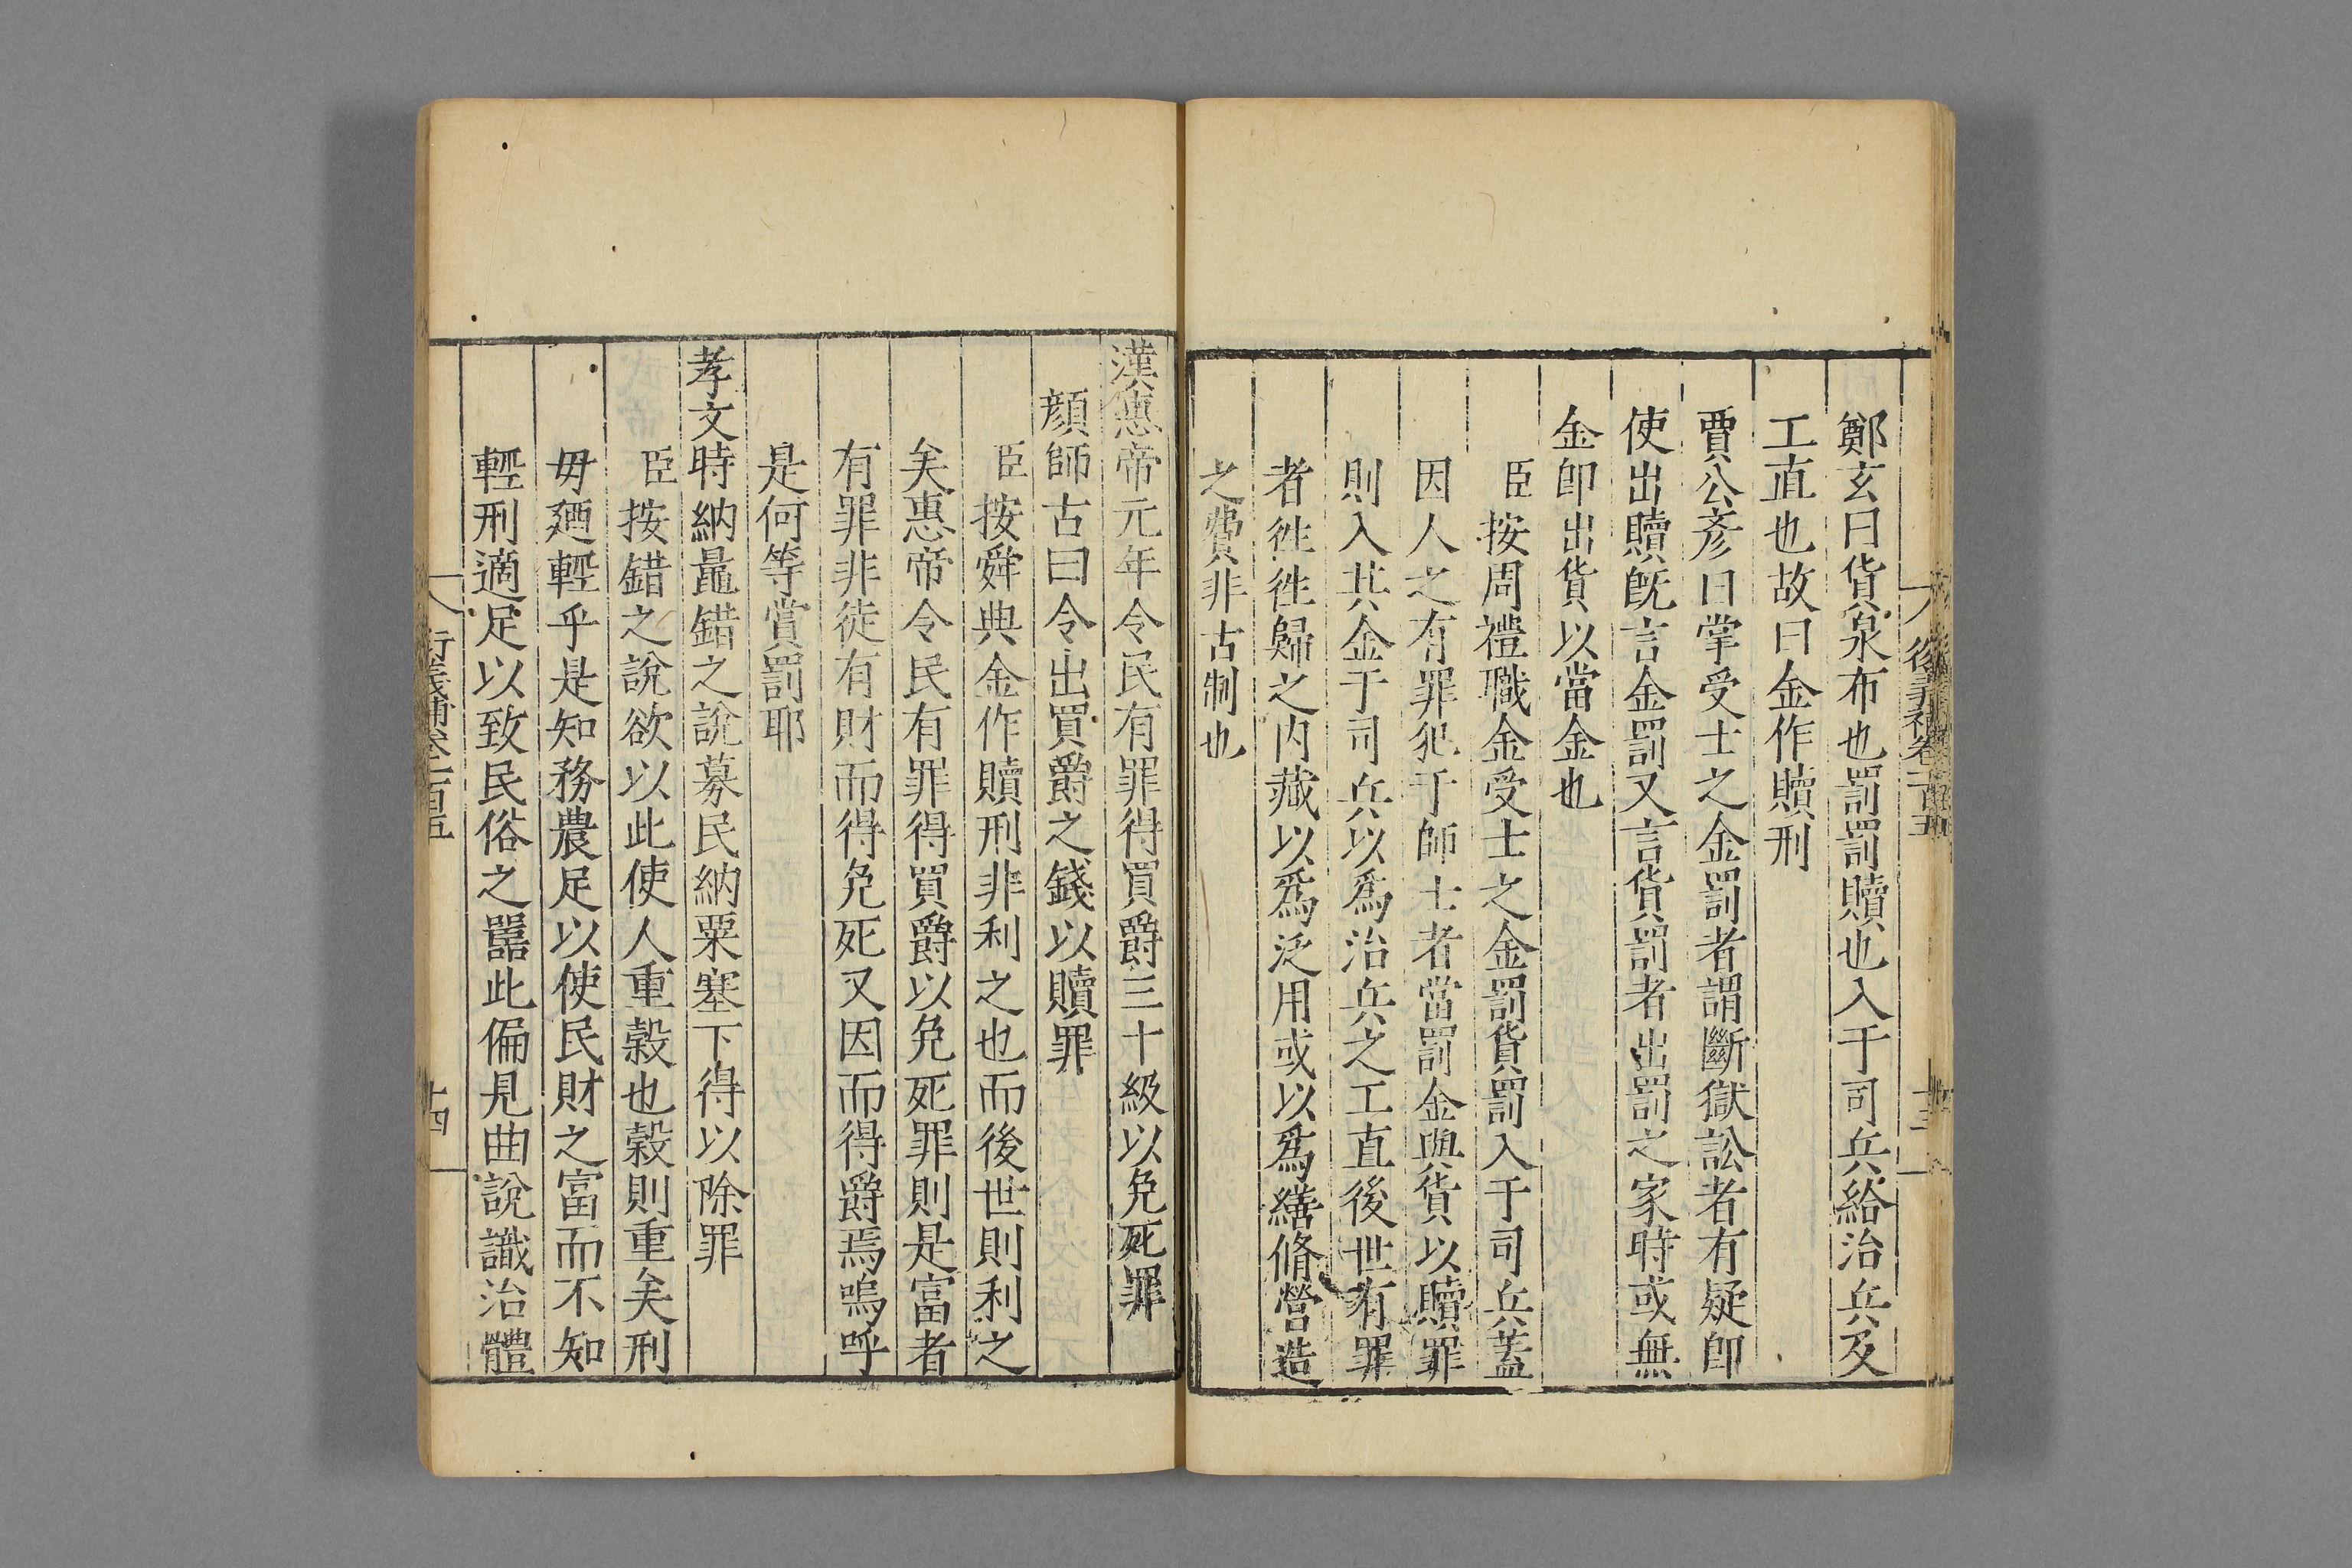 鄭玄曰貨泉布也罰罰贖也入于司兵給治兵及
工直也故曰金作贖刑
賈公彥曰掌受士之金罰者謂斷獄訟者有疑卽
使出贖旣言金罰又言貨罰者出罰之家時或無
金卽出貨以當金也
臣按周禮職金受士之金罰貨罰入于司兵蓋
因人之有罪犯于師士者當罰金與貨以贖罪
則入其金于司兵以爲治兵之工直後世有罪
者徃徃歸之内藏以爲泛用或以爲繕脩營造
之費非古制也
漢惠帝元年令民有罪得買爵三十級以免死罪
顏師古曰令出買爵之錢以贖罪
臣按舜典金作贖刑非利之也而後世則利之
矣惠帝令民有罪得買爵以免死罪則是富者
有罪非徒有財而得免死又因而得爵焉嗚呼
是何等賞罰耶
孝文時納鼂錯之說募民納粟塞下得以除罪
臣按錯之說欲以此使人重榖也榖則重矣刑
毋廼輕乎是知務農足以使民財之富而不知
輕刑適足以致民俗之嚚此偏見曲說識治體
衍義補卷之一百五
十四